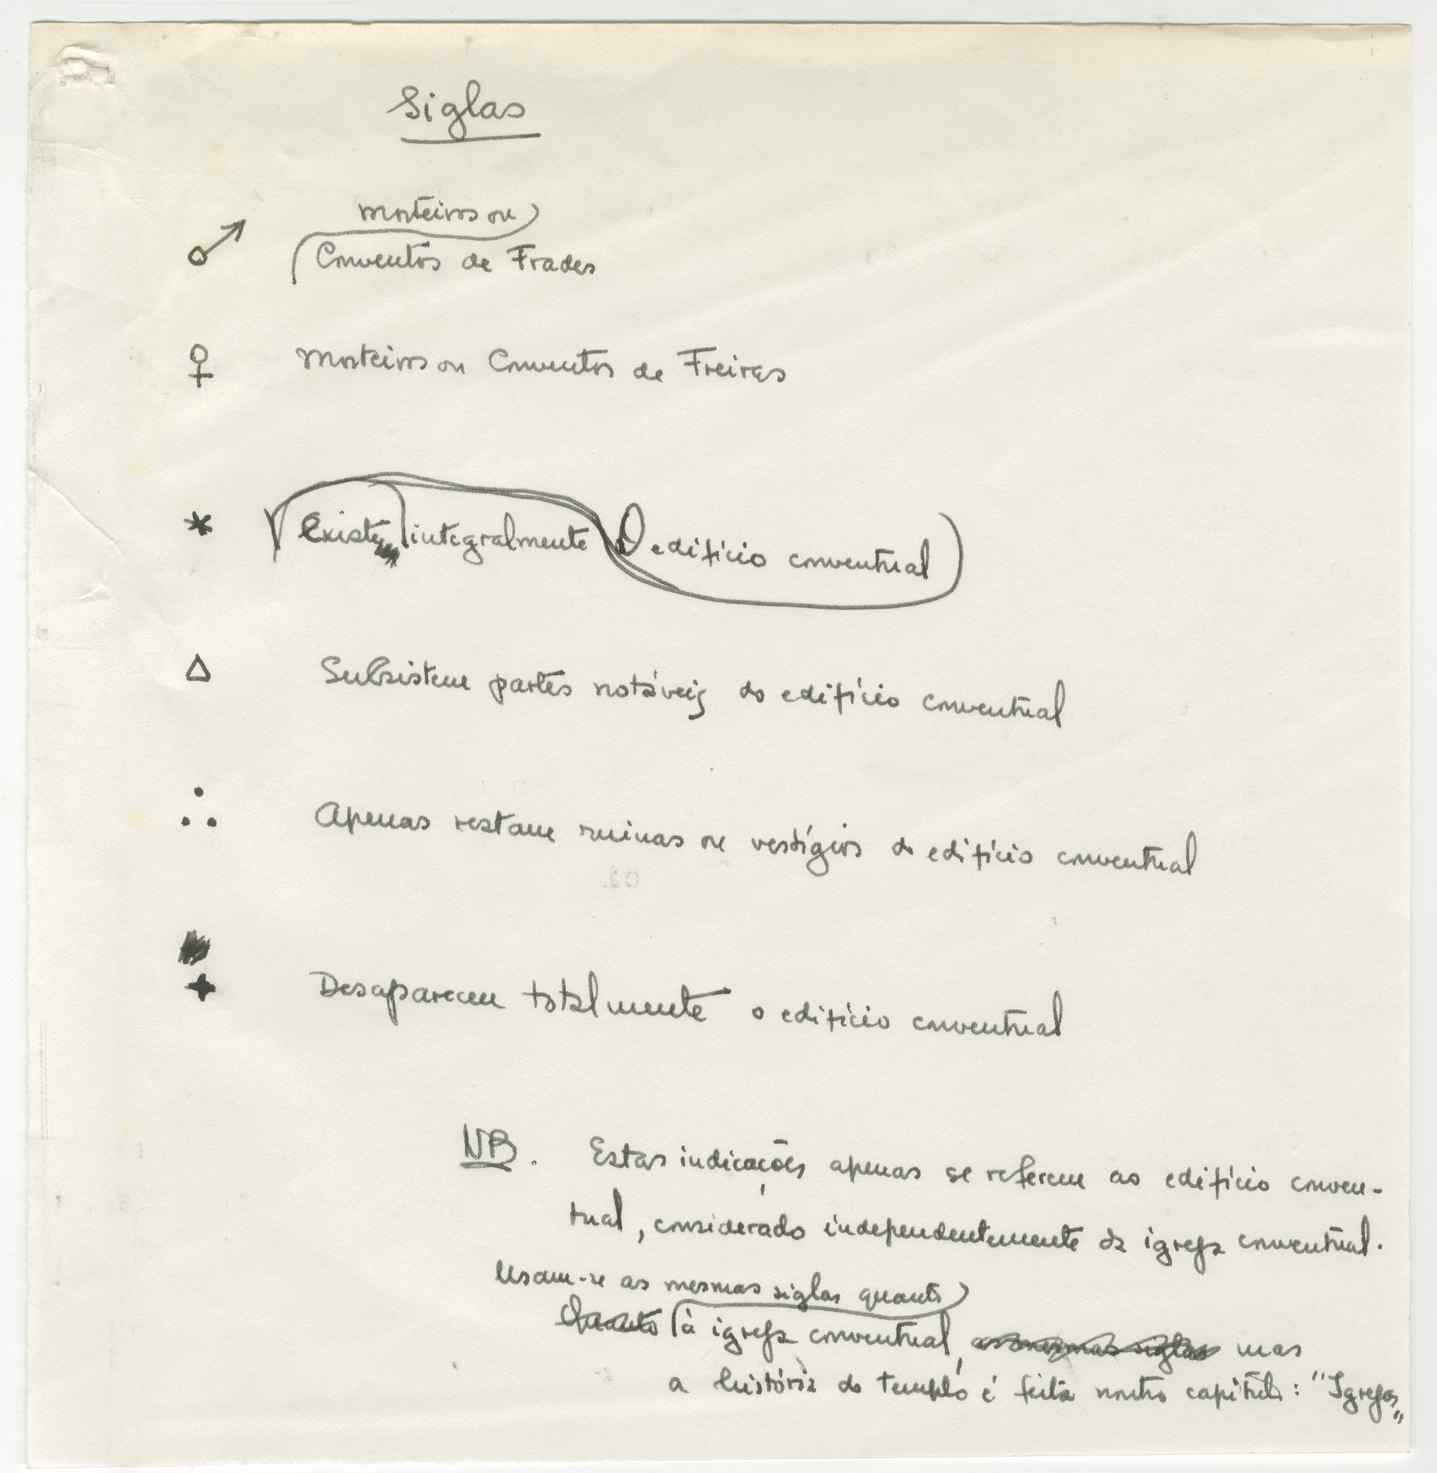 Siglas
♂ Mosteiros ou
Conventos de Frades
♀ Mosteiros ou Conventos de Freiras
* Existe integralmente O edifício conventual
△ Subsistem partes notáveis do edifício conventual
∴ Apenas restam ruinas ou vestígios do edifício conventual
✦ Desapareceu totalmente o edifício conventual
NB. Estas indicações apenas se referem ao edifício conven-
tual, considerado independentemente da igreja conventual.
Usam-se as mesmas siglas quanto
Quanto à igreja conventual, as mesmas siglas mas
a história do templo é feita noutro capítulo: "Igrejas"